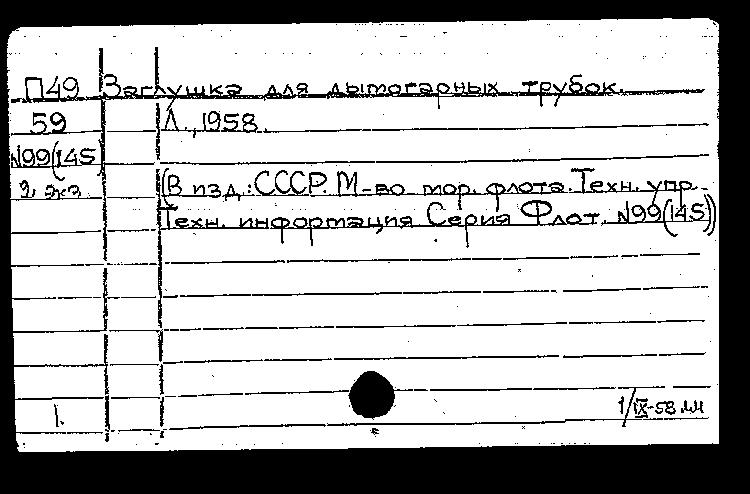 П49 Заглушка для дымогарных трубок.
59 Л., 1958.
№99(145)
2 экз. (В изд.: СССР. М-во мор. флота. Техн. упр.
Техн. информация Серия Флот. №99(145))
1.
1/IX-58 мм